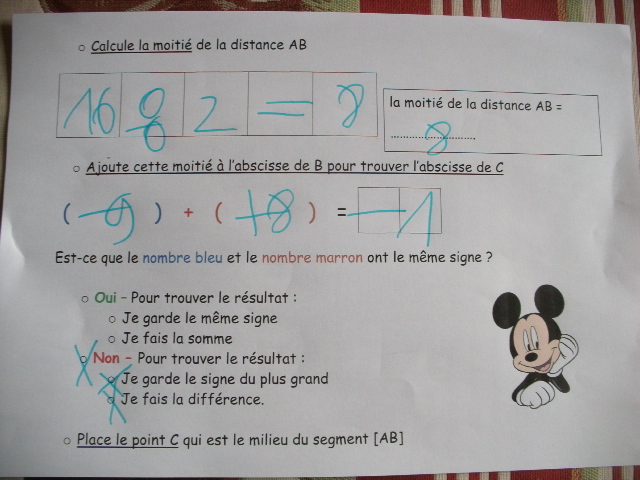 ○ Calcule la moitié de la distance AB
16 8 2 = 8
la moitié de la distance AB =
........8........
○ Ajoute cette moitié à l'abscisse de B pour trouver l'abscisse de C
( -9 ) + ( +8 ) = -1
Est-ce que le nombre bleu et le nombre marron ont le même signe ?
○ Oui - Pour trouver le résultat :
○ Je garde le même signe
○ Je fais la somme
○ Non - Pour trouver le résultat :
○ Je garde le signe du plus grand
○ Je fais la différence.
○ Place le point C qui est le milieu du segment [AB]